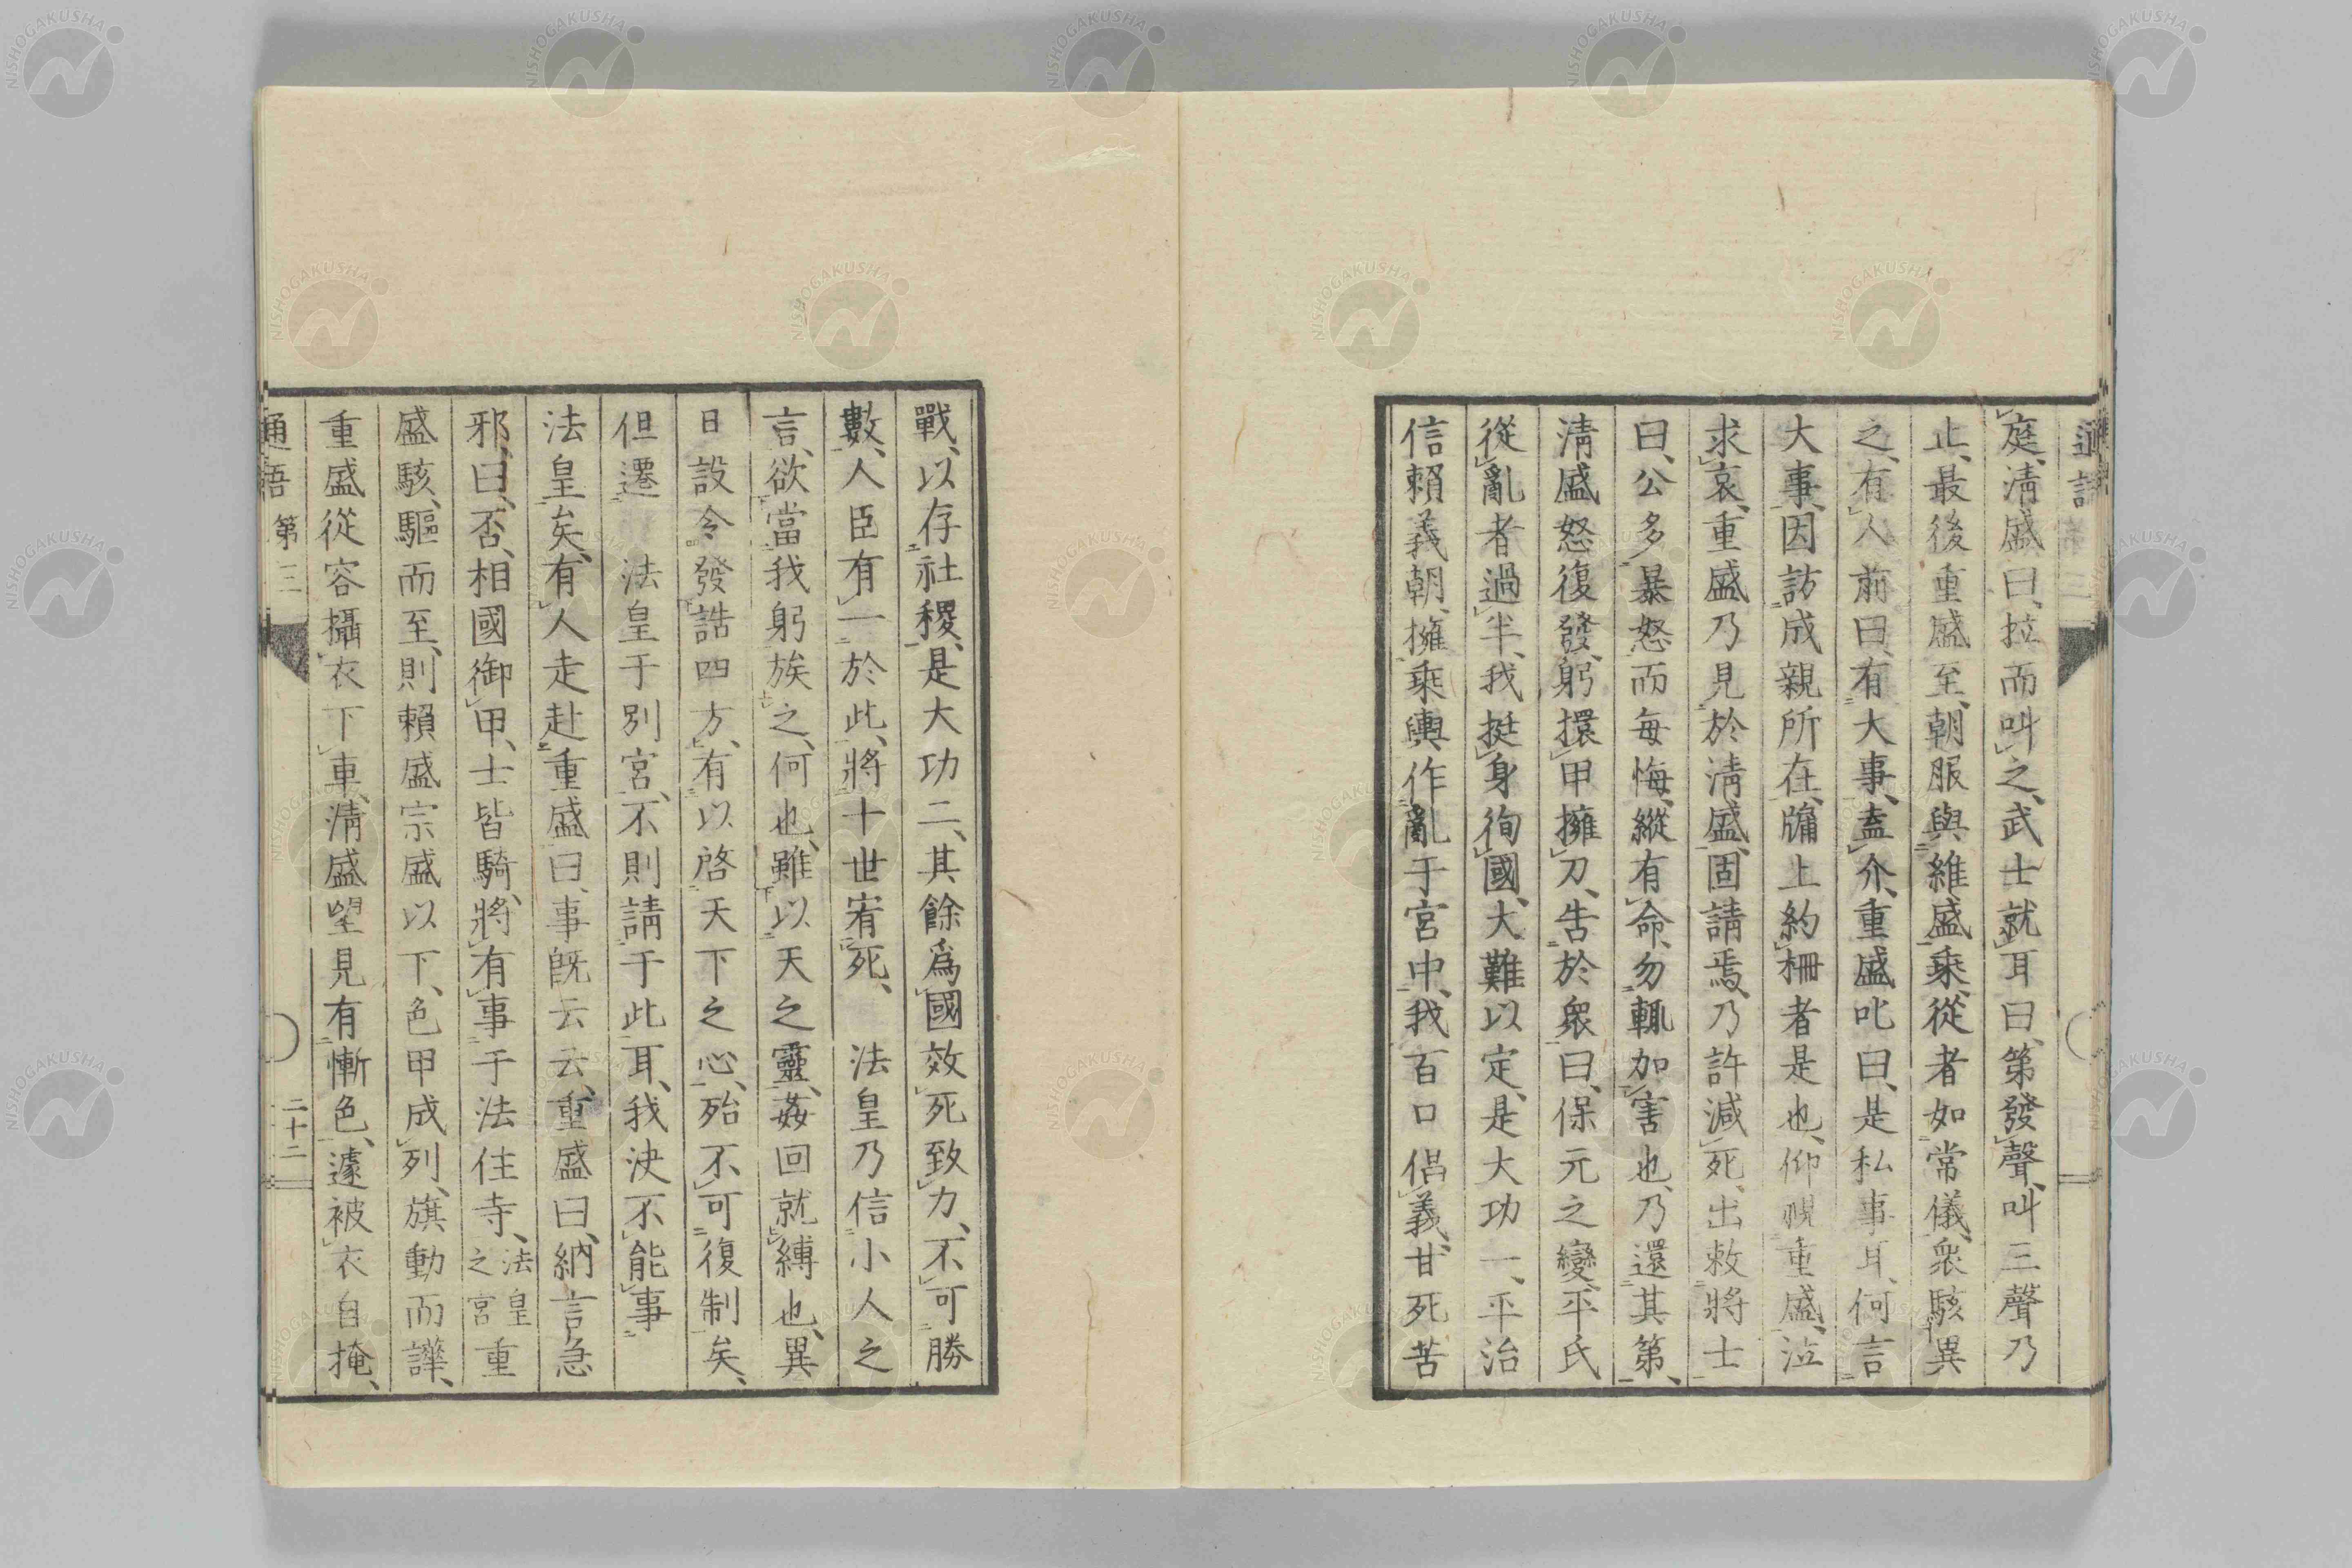 庭、清盛曰、拉而叫之、武士就耳曰、第發聲、叫三聲乃
止、最後重盛至、朝服與維盛乘、從者如常儀、衆駭異
之、有人前曰、有大事、盍介、重盛叱曰、是私事耳、何言
大事、因訪成親所在、牖上約柵者是也、仰視重盛、泣
求哀、重盛乃見於淸盛、固請焉、乃許減死、出敕將士
曰、公多暴怒而每悔、縱有命、勿輒加害也、乃還其第、
淸盛怒復發、躬擐甲擁刀、告於衆曰、保元之變、平氏
從亂者過半、我挺身徇國、大難以定、是大功一、平治
信賴義朝、擁乘輿作亂于宮中、我百口倡義、甘死苦
戰、以存社稷、是大功二、其餘爲國效死致力、不可勝
數、人臣有一於此、將十世宥死、法皇乃信小人之
言、欲當我躬族之、何也、雖以天之靈、姦回就縛也、異
日設令發誥四方、有以啓天下之心、殆不可復制矣、
但遷法皇于別宮、不則請于此耳、我決不能事
法皇矣、有人走赴重盛曰、事旣云云、重盛曰、納言急
邪、曰、否、相國御甲、士皆騎、將有事于法住寺、法皇之宮重
盛駭、驅而至、則賴盛宗盛以下、色甲成列、旗動而譁、
重盛從容攝衣下車、淸盛望見有慚色、遽被衣自掩、
通語 第三 二十二
NISHOGAKUSHA